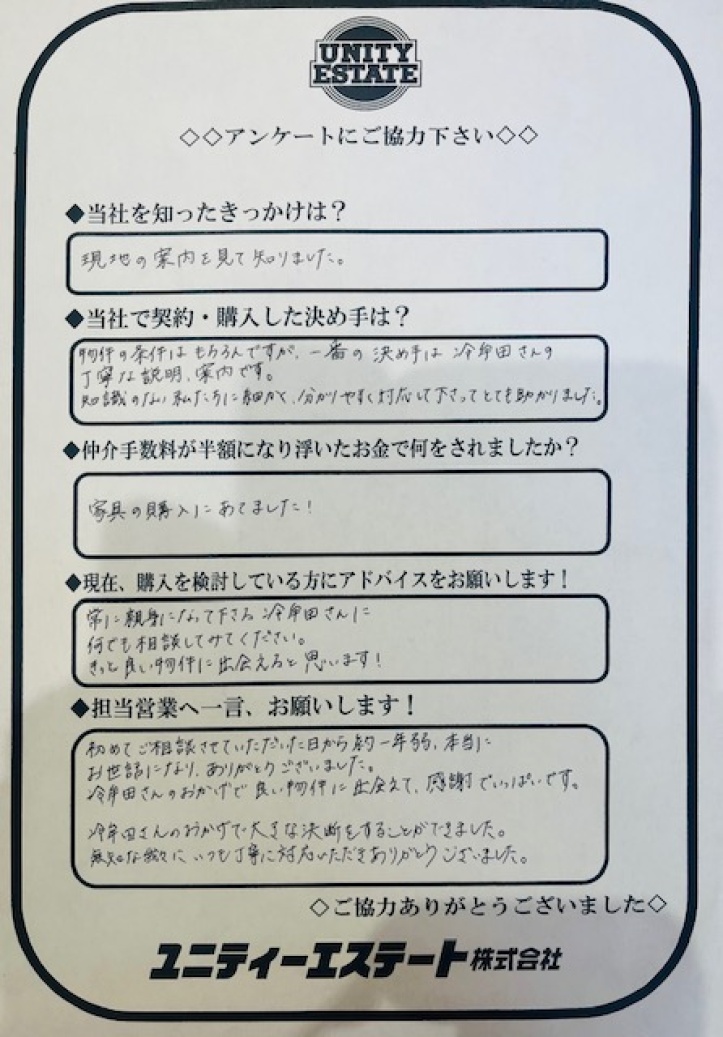 UNITY
ESTATE
◇◇アンケートにご協力下さい◇◇
◆当社を知ったきっかけは？
現地の案内を見て知りました。
◆当社で契約・購入した決め手は？
物件の条件はもちろんですが、一番の決め手は冷牟田さんの
丁寧な説明、案内です。
知識のない私たちに細かく、分かりやすく対応して下さってとても助かりました。
◆仲介手数料が半額になり浮いたお金で何をされましたか？
家具の購入にあてました！
◆現在、購入を検討している方にアドバイスをお願いします！
常に親身になって下さる冷牟田さんに
何でも相談してみてください。
きっと良い物件に出会えると思います！
◆担当営業へ一言、お願いします！
初めてご相談させていただいた日から約一年弱、本当に
お世話になり、ありがとうございました。
冷牟田さんのおかげで良い物件に出会えて、感謝でいっぱいです。
冷牟田さんのおかげで大きな決断をすることができました。
無知な我々に、いつも丁寧に対応いただきありがとうございました。
◇ご協力ありがとうございました◇
ユニティーエステート株式会社